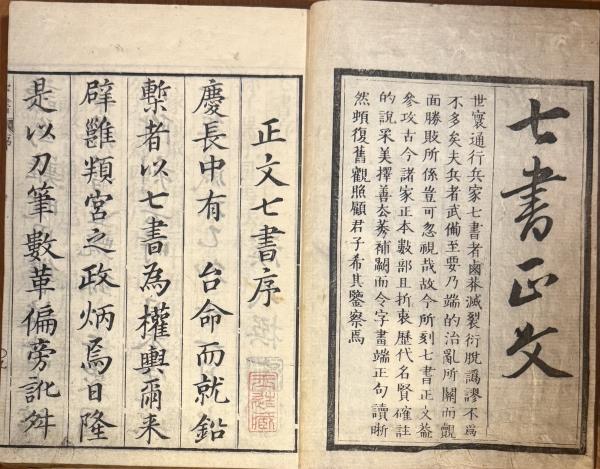 七書正文
世寰通行兵家七書者鹵莽滅裂衍脫譌謬不爲
不多矣夫兵者武備至要乃端的治亂所關而覿
面勝敗所係豈可忽視哉故今所刻七書正文益
參攷古今諸家正本數部且折衷歷代名賢確註
的說采美擇善厺莠補闕而令字畫端正句讀晰
然頓復舊觀照顧君子希其鑒察焉
正文七書序
慶長中有 台命而就鉛
槧者以七書為權輿爾来
辟雝頖宮之政炳焉日隆
是以刀筆數革偏旁訛舛